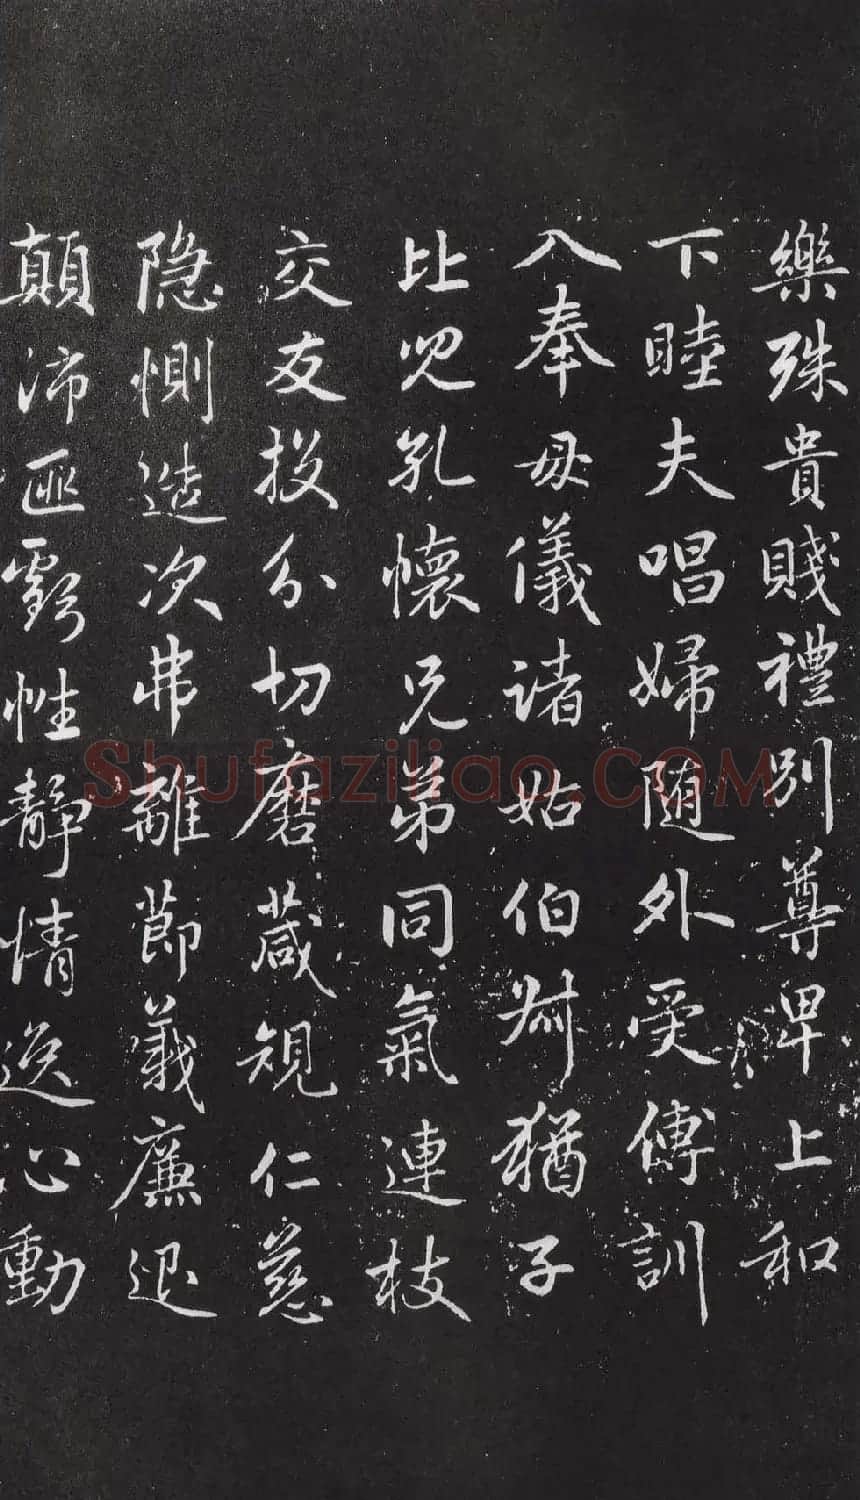 樂殊貴賤禮別尊卑上和
下睦夫唱婦隨外受傅訓
入奉母儀諸姑伯叔猶子
比兒孔懷兄弟同氣連枝
交友投分切磨箴規仁慈
隱惻造次弗離節義廉退
顛沛匪虧性靜情逸心動
Shufaziliao.COM